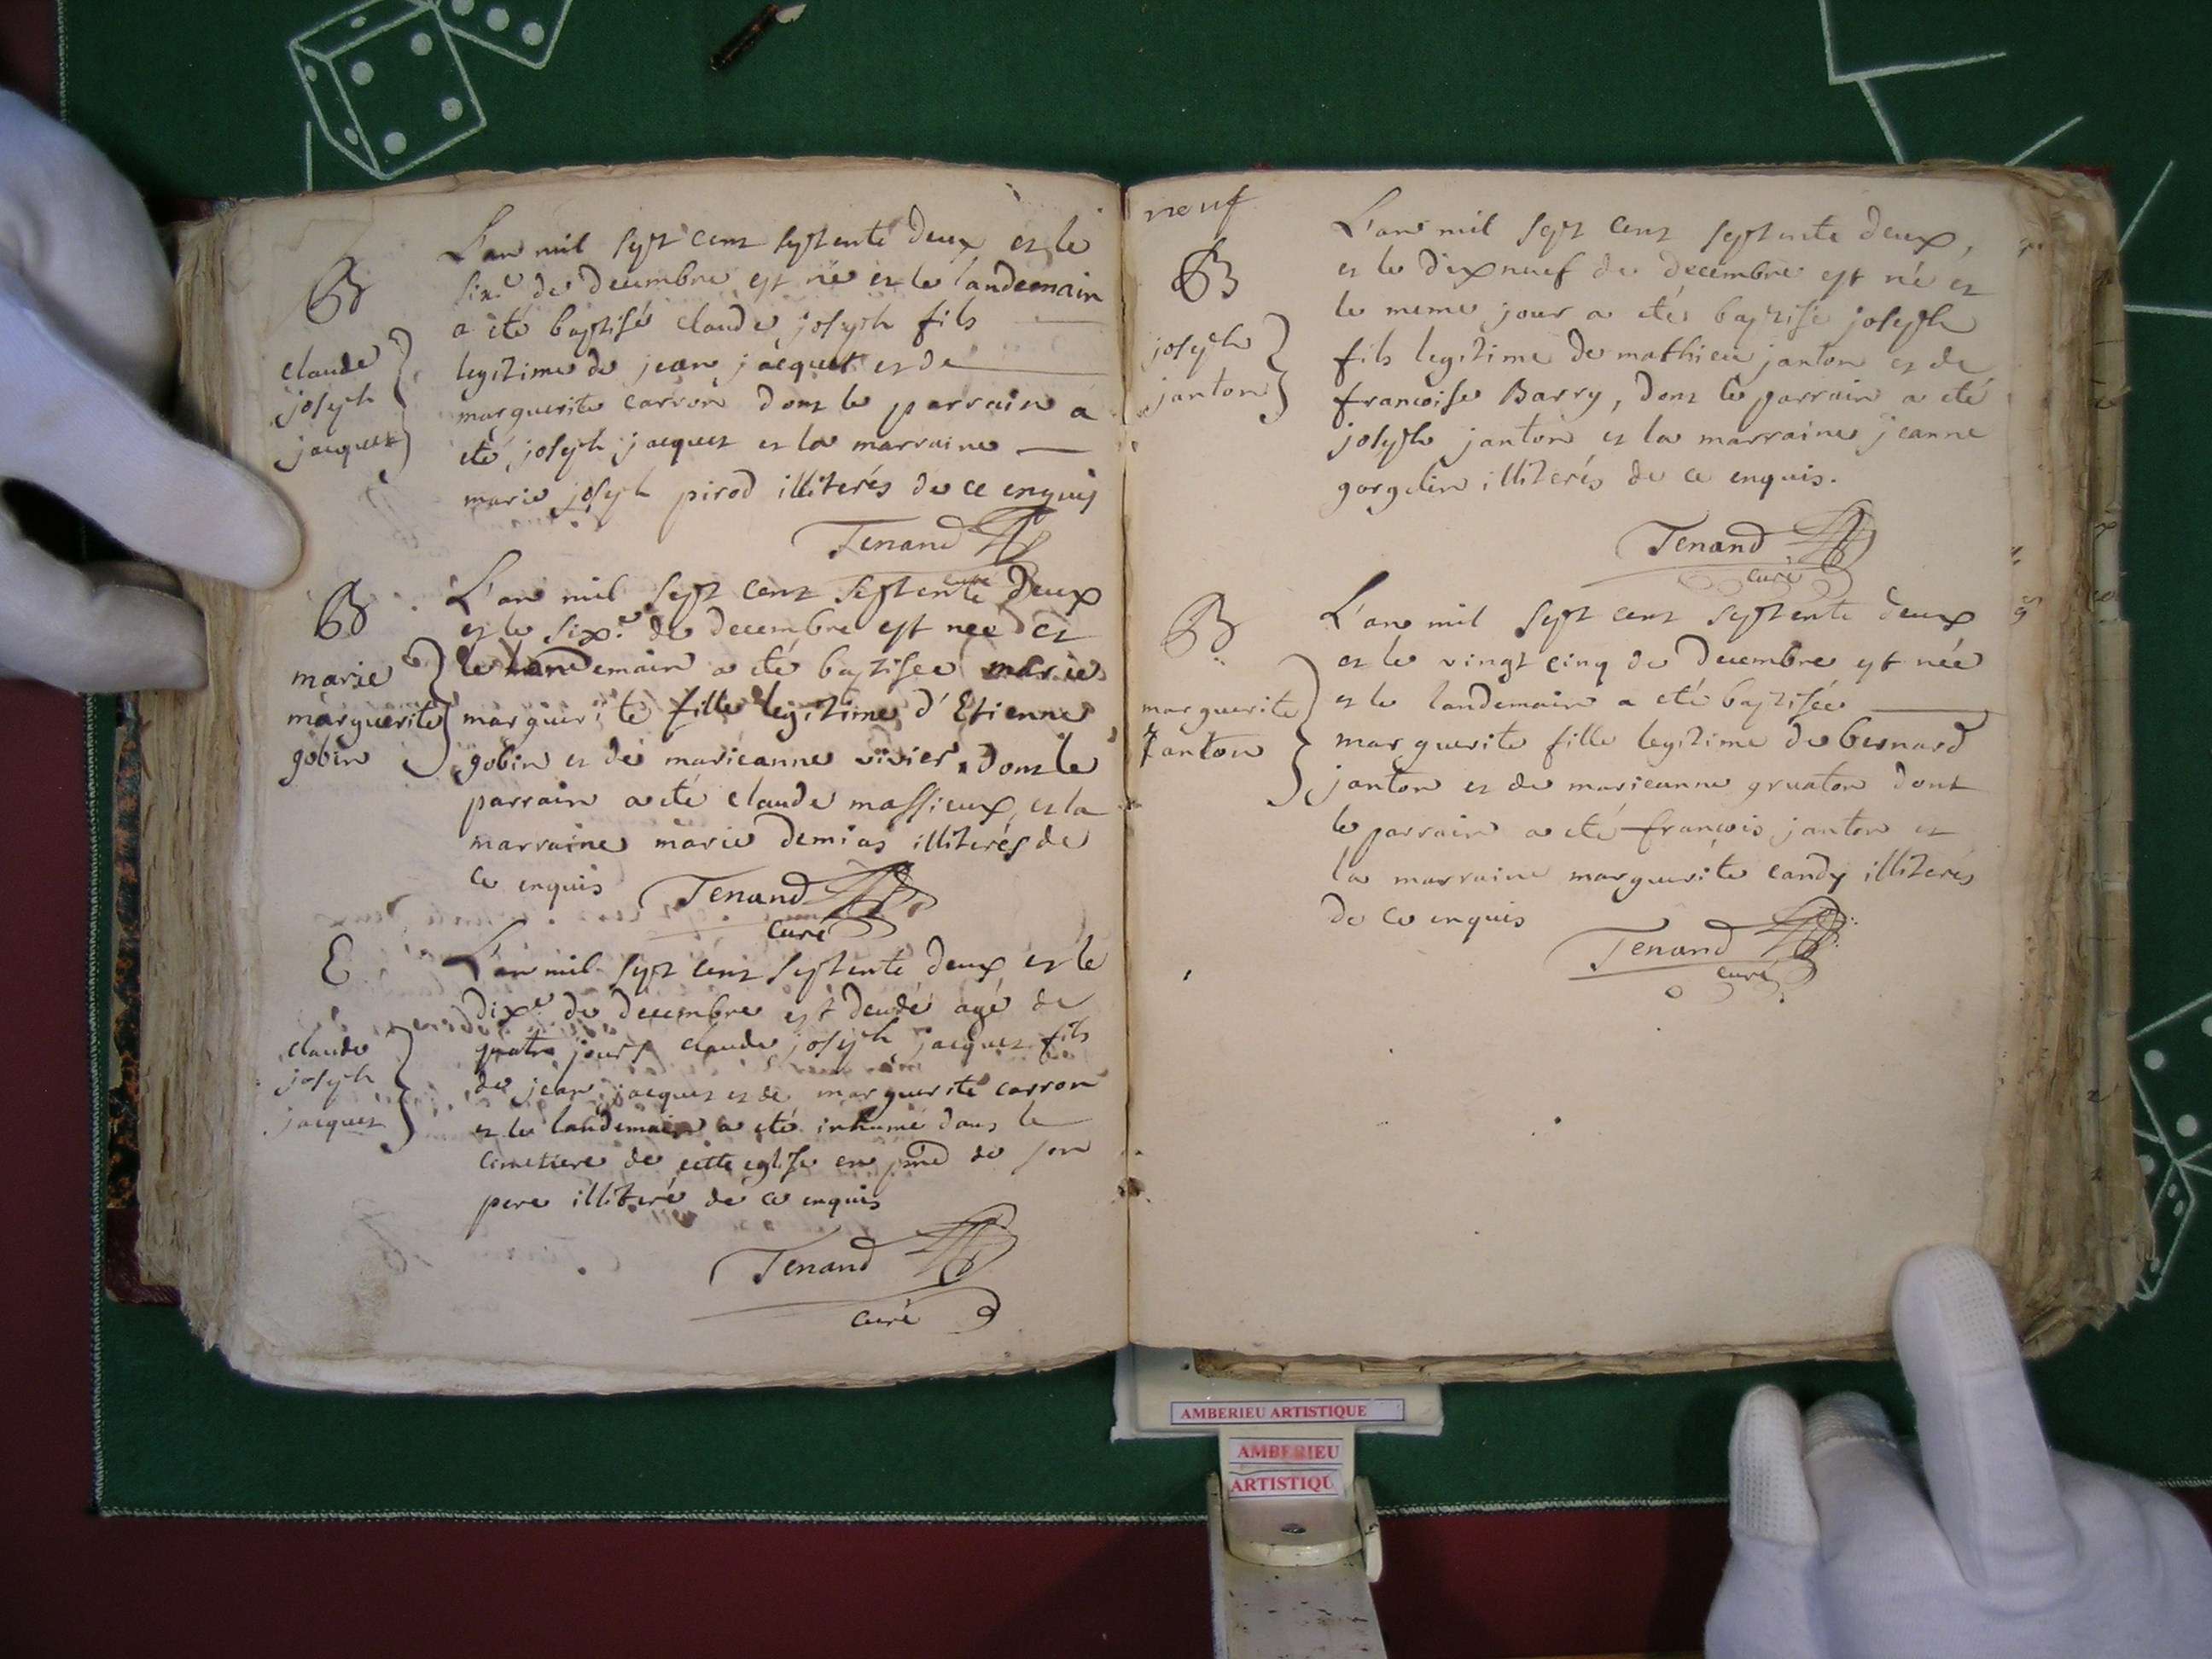 B
claude
joseph
jacquet
L'an mil sept cent septente deux et le
six.e de decembre est né et le landemain
a eté baptisé claude joseph fils
legitime de jean jacquet et de
marguerite carron dont le parrain a
eté joseph jacquet et la marraine
marie joseph pirod illiterés de ce enquis
Tenand
curé
B
marie
marguerite
gobin
L'an mil sept cent septente deux
et le six.e de decembre est neé et
le landemain a eté baptisée marie
marguerite fille legitime d'Etienne
gobin et de marieanne vivier, dont le
parrain a eté claude massieux, et la
marraine marie demias illiterés de
ce enquis Tenand
curé
E
claude
joseph
jacquet
L'an mil sept cent septente deux et le
dix.e de decembre est decedé agé de
quatre jours claude joseph jacquet fils
de jean jacquet et de marguerite carron
et le landemain a eté inhumé dans le
cimetiere de cette eglise en pnce de son
pere illiteré de ce enquis
Tenand
curé
neuf
B
joseph
janton
L'an mil sept cent septente deux,
et le dixneuf de decembre est né et
le meme jour a eté baptisé joseph
fils legitime de mathieu janton et de
francoise Barry, dont le parrain a eté
joseph janton et la marraine jeanne
gorgelin illiterés de ce enquis.
Tenand
curé
B
marguerite
janton
L'an mil sept cent septente deux
et le vingt cinq de decembre est née
et le landemain a eté baptisée
marguerite fille legitime de bernard
janton et de marieanne gruaton dont
le parrain a eté françois janton et
la marraine marguerite candy illiterés
de ce enquis
Tenand
curé
AMBERIEU ARTISTIQUE
AMBERIEU
ARTISTIQU